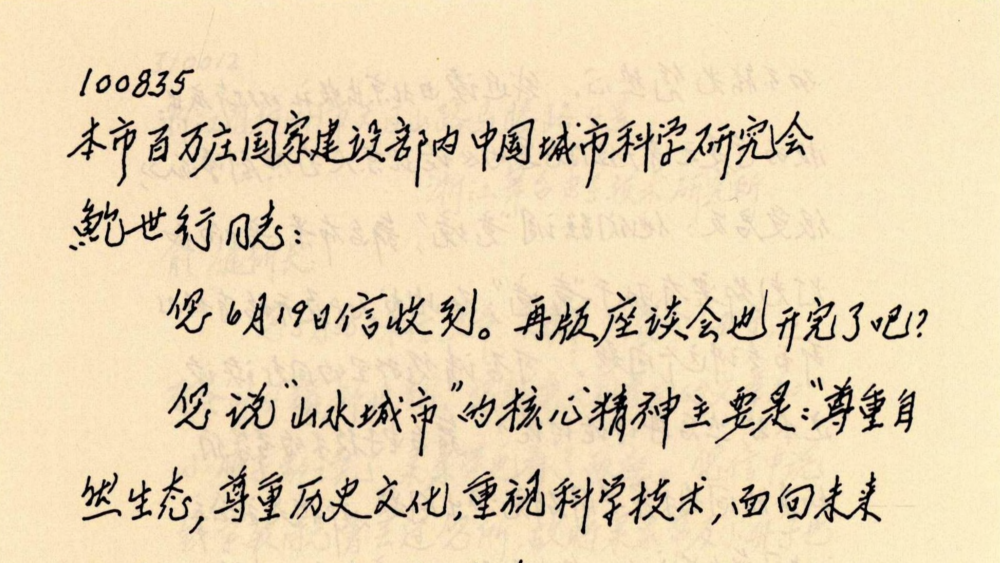 100835
本市百万庄国家建设部内中国城市科学研究会
鲍世行同志：
您6月19日信收到。再版座谈会也开完了吧？
您说“山水城市”的核心精神主要是：“尊重自
然生态，尊重历史文化，重视科学技术，面向未来